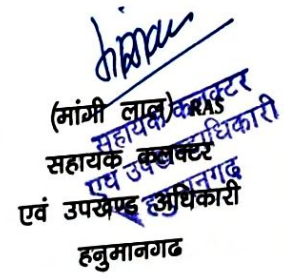 (मांगी लाल) RAS
सहायक कलक्टर
एवं उपखण्ड अधिकारी
हनुमानगढ
सहायक कलक्टर
एवं उपखण्ड अधिकारी
हनुमानगढ़